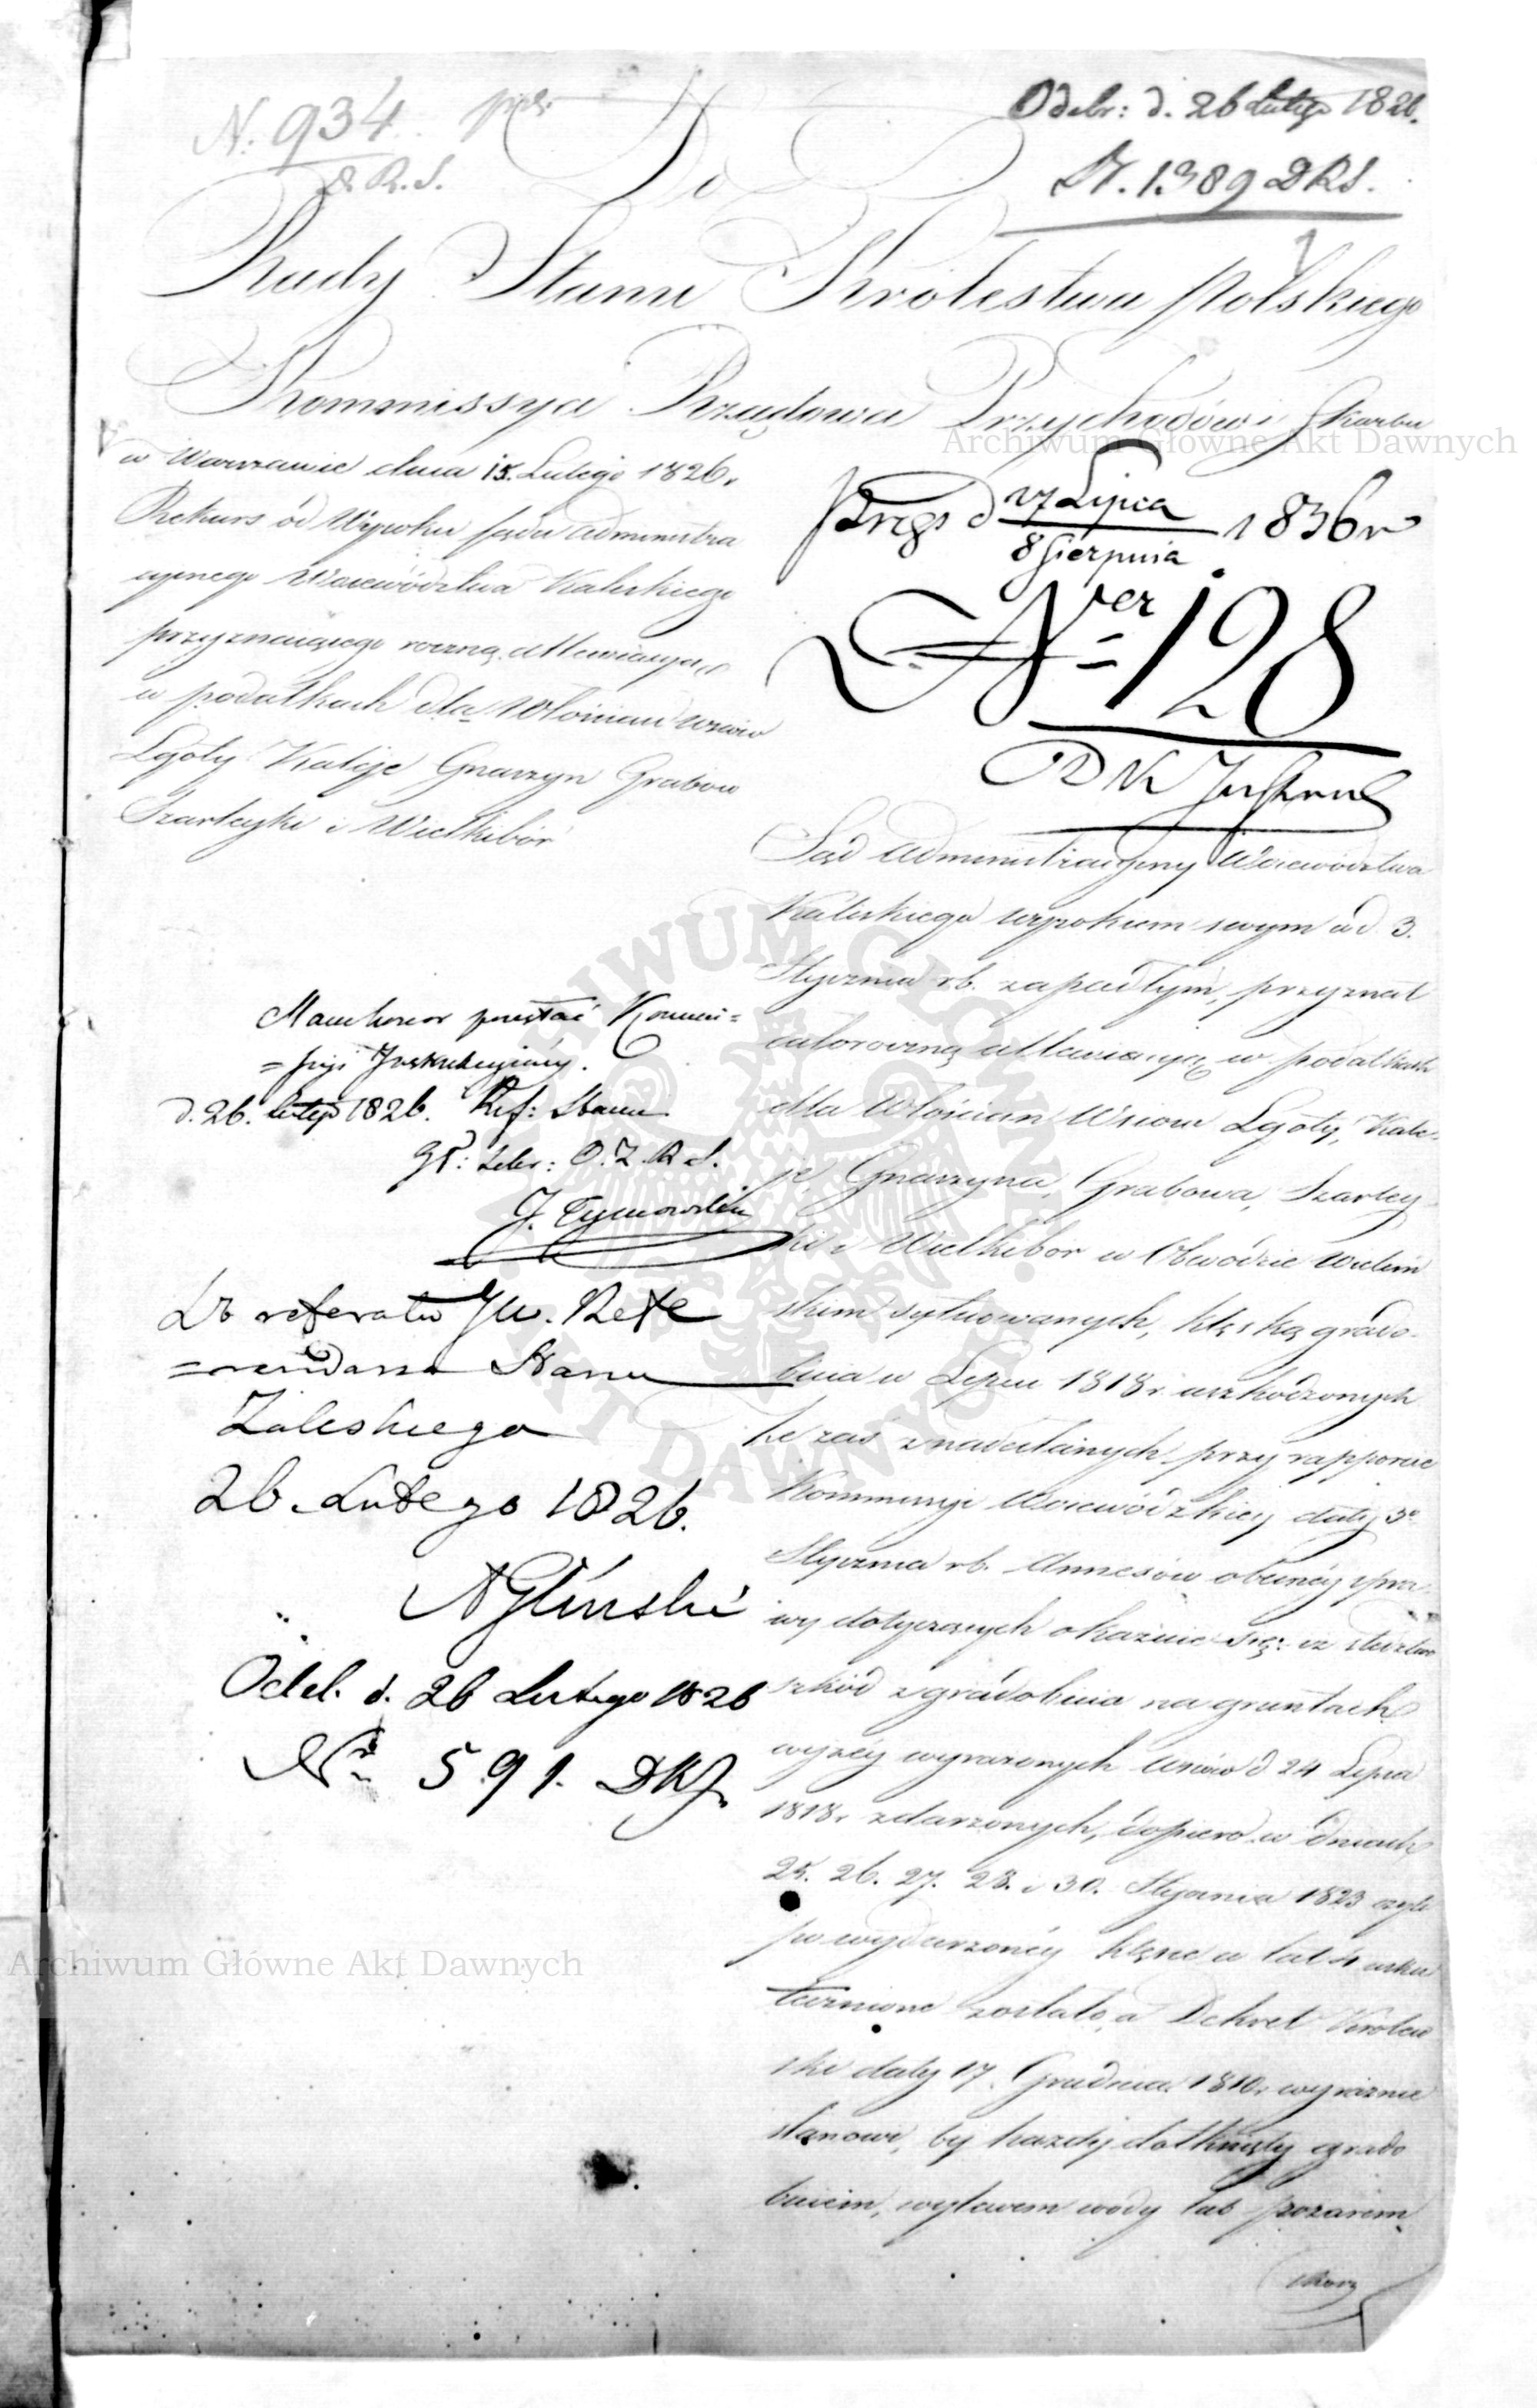 N. 934.
R. S.
Odebr: d. 26 Lutego 1826.
N. 1389 DRS.
Do
Rady Stanu Królestwa Polskiego
Kommissya Rządowa Przychodów i Skarbu
w Warszawie dnia 15. Lutego 1826.
Rekurs od Wyroku Sądu Administra
cyinego Woiewództwa Kaliskiego
przyznaiącego roczną allewiacyą
w podatkach dla Włościan wsiów
Lgoty Kaleje Gnaszyn Grabow
Szarleyki i Wielkibór
d. 27 Lipca
8 Sierpnia 1836 r
Ner 128
Sąd Administracyiny Woiewództwa
Kaliskiego wyrokiem swym w d. 3.
Stycznia rb. zapadłym, przyznał
całoroczną allewiacyę w podatkach
dla Włościan Wsiow Lgoty, Kale-
je Gnaszyna, Grabowa, Szarley
ki i Wielkibór w Obwodzie Wieluń
skim sytuowanych, klęską grado-
bicia w Lipcu 1818 r. uszkodzonych
że zaś z nadesłanych przy rapporcie
Kommissyi Woiewódzkiey daty 3o
Stycznia rb. Annexów obecnéy spra-
wy dotyczących okazuie się: iż śledztwo
szkód z gradobicia na gruntach
wyżéy wyrażonych wsiów d 24 Lipca
1818 r. zdarzonych, dopiero w dniach
25. 26. 27. 28. i 30. Stycznia 1823 czyli
po wydarzonéy klęsce w lat 4 usku
tecznione zostało, a Dekret Królew
ski daty 17. Grudnia 1810 r. wyraźnie
stanowi, by każdy dotknięty grado
biciem, wylewem wody lub pożarem,
skoro
Kommi=
=ssyi Instrukcyiney.
d. 26. Lutego 1826. Ref: Stanu
J. Tymowski
Do referatu JW. Refe
=rendarza Stanu
Zaleskiego
26. Lutego 1826.
A Gliński
Odeb. d. 26 Lutego 1826
No 591. DKJ.
Archiwum Główne Akt Dawnych
Archiwum Główne Akt Dawnych
ARCHIWUM GŁÓWNE AKT DAWNYCH